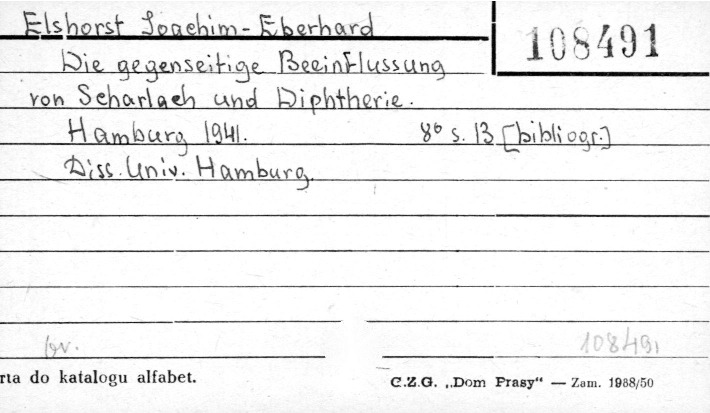 Elshorst Joachim-Eberhard
108491
Die gegenseitige Beeinflussung
von Scharlach und Diphtherie.
Hamburg 1941. 8° s. 13 [bibliogr.]
Diss. Univ. Hamburg.
br. 108491
rta do katalogu alfabet. C.Z.G. „Dom Prasy“ — Zam. 1988/50